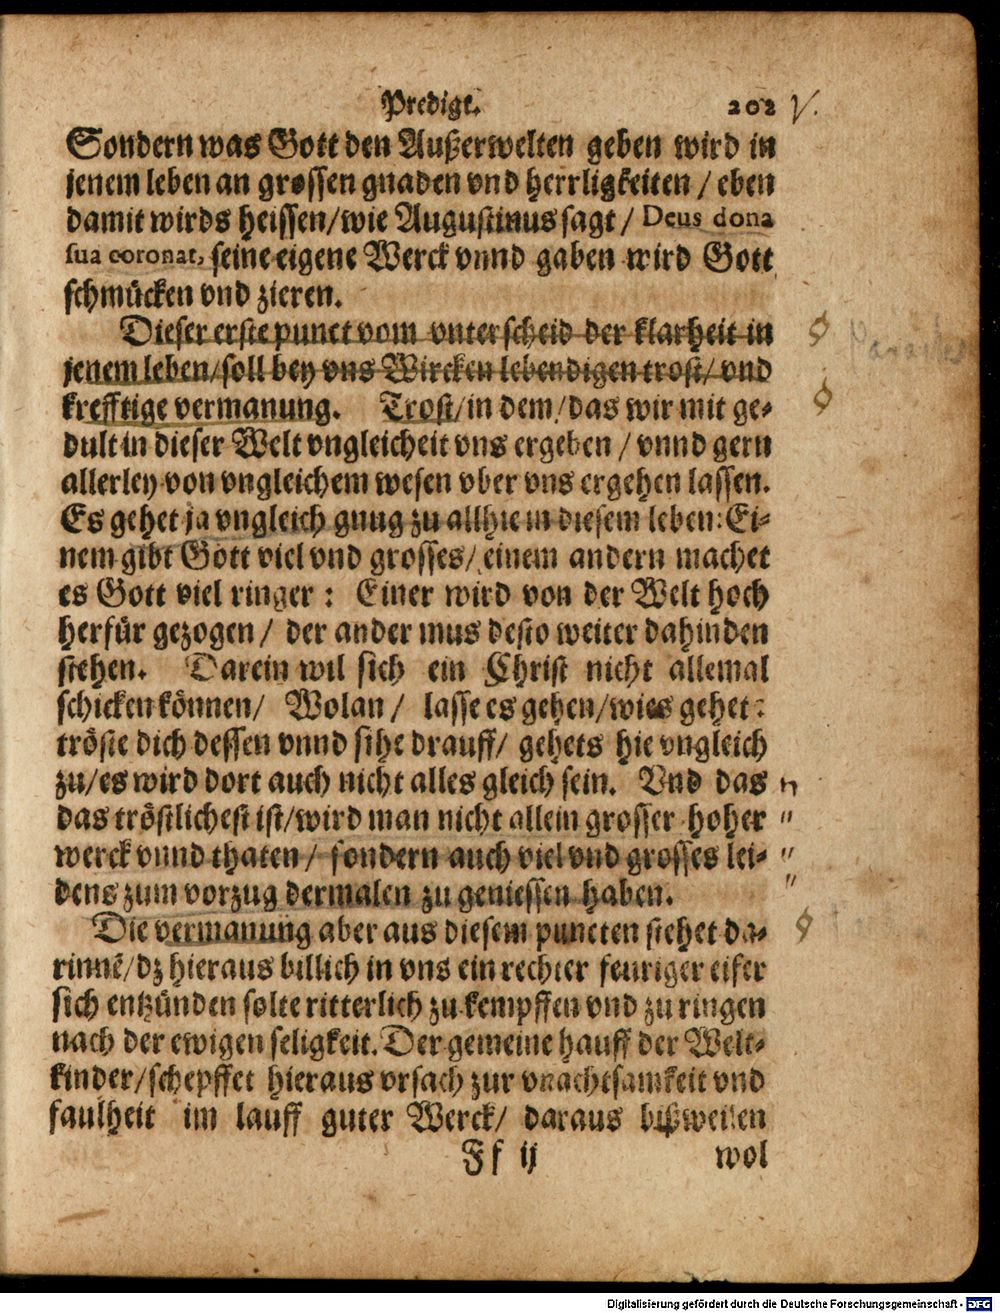 Predigt. 202 V.
Sondern was Gott den Außerwelten geben wird in
jenem leben an grossen gnaden vnd herrligkeiten / eben
damit wirds heissen/wie Augustinus sagt / Deus dona
sua coronat, seine eigene Werck vnnd gaben wird Gott
schmücken vnd zieren.
Dieser erste punct vom vnterscheid der klarheit in
jenem leben/soll bey vns Wircken lebendigen trost/ vnd
krefftige vermanung. Trost/in dem/das wir mit ge-
dult in dieser Welt vngleicheit vns ergeben / vnnd gern
allerley von vngleichem wesen vber vns ergehen lassen.
Es gehet ja vngleich gnug zu allhie in diesem leben: Ei-
nem gibt Gott viel vnd grosses/ einem andern machet
es Gott viel ringer : Einer wird von der Welt hoch
herfür gezogen / der ander mus desto weiter dahinden
stehen. Darein wil sich ein Christ nicht allemal
schicken können/ Wolan / lasse es gehen/wies gehet:
tröste dich dessen vnnd sihe drauff/ gehets hie vngleich
zu/es wird dort auch nicht alles gleich sein. Vnd das
das tröstlichest ist/wird man nicht allein grosser hoher "
werck vnnd thaten/ sondern auch viel vnd grosses lei- "
dens zum vorzug dermalen zu geniessen haben. "
Die vermanung aber aus diesem puncten stehet da-
rinnē/dz hieraus billich in vns ein rechter feuriger eifer
sich entzünden solte ritterlich zu kempffen vnd zu ringen
nach der ewigen seligkeit. Der gemeine hauff der Welt-
kinder/schepffet hieraus vrsach zur vnachtsamkeit vnd
faulheit im lauff guter Werck/ daraus bißweilen
Ff ij wol
Digitalisierung gefördert durch die Deutsche Forschungsgemeinschaft - DFG